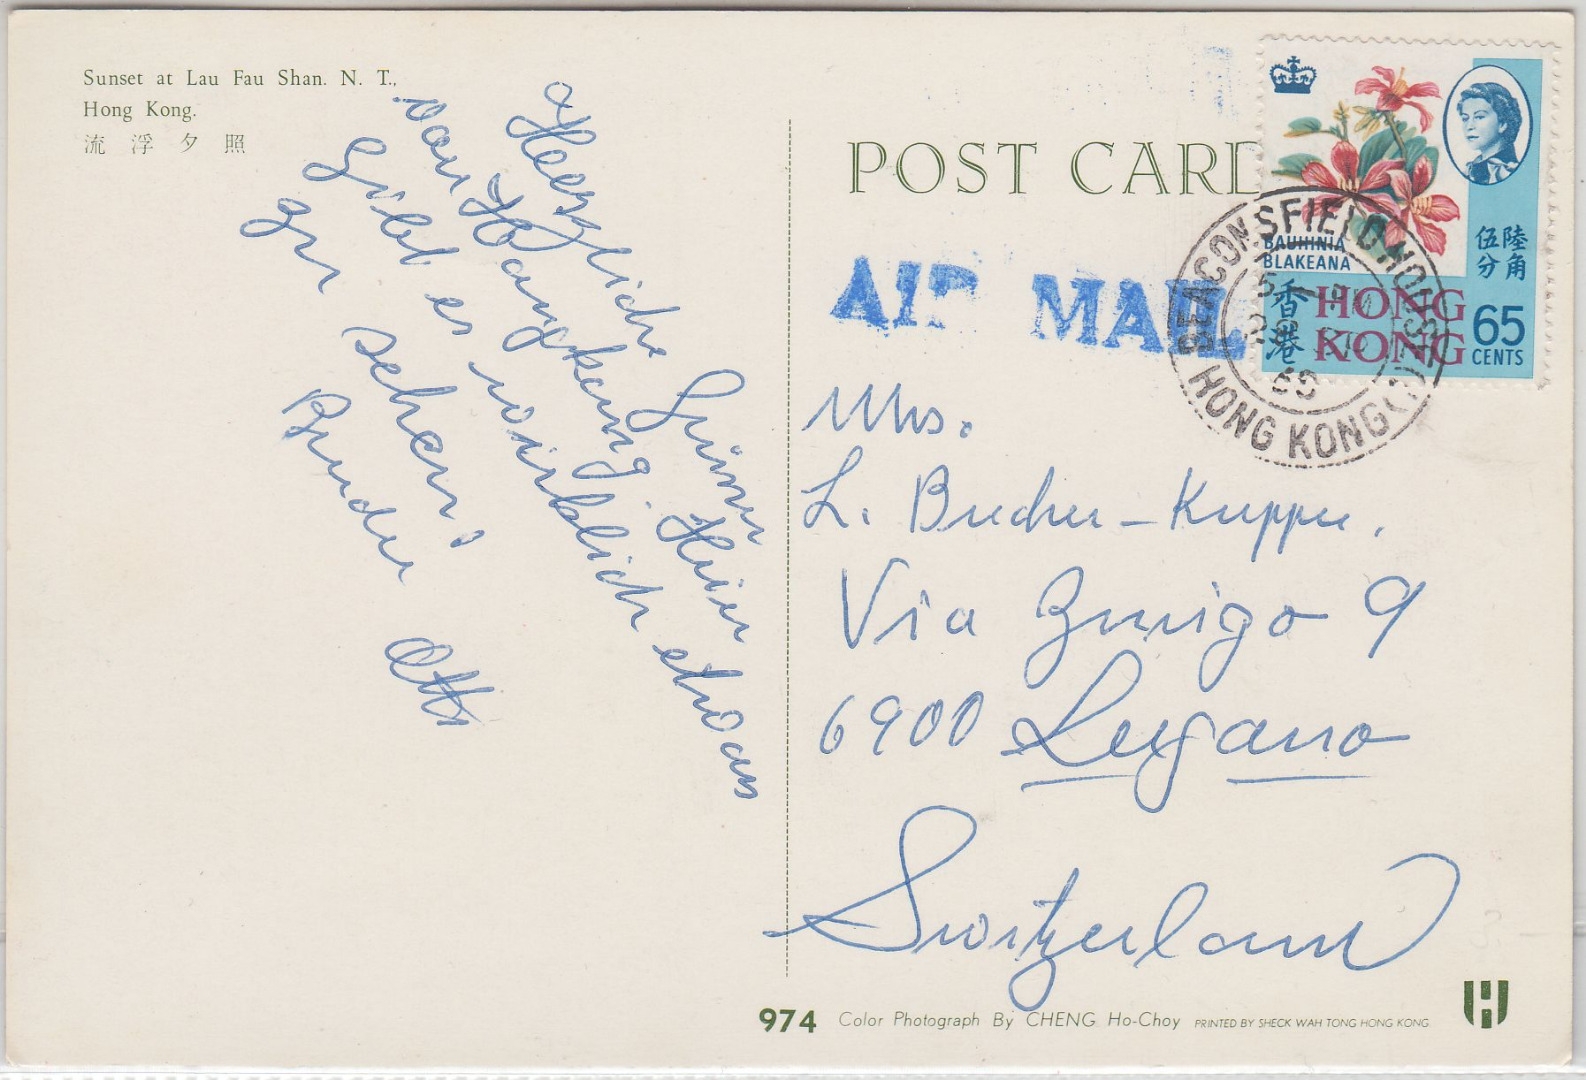 Sunset at Lau Fau Shan. N. T.,
Hong Kong.
流浮夕照
Herzliche Grüsse
von Hongkong. Hier
gibt es wirklich etwas
zu sehen!
Bruder Otto
POST CARD
AIR MAIL
BAUHINIA
BLAKEANA
伍陸
分角
香港
HONG
KONG
65
CENTS
BEACONSFIELD HOUSE
HONG KONG
Mrs.
L. Bucher-Kupper.
Via 9
6900 Lugano
Switzerland
974 Color Photograph By CHENG Ho-Choy PRINTED BY SHECK WAH TONG HONG KONG